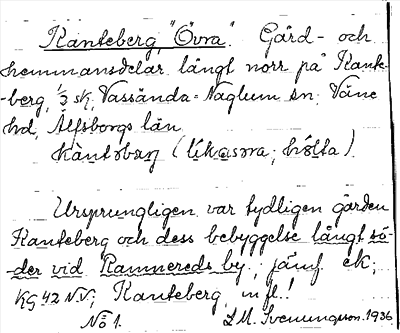 Ranteberg, "Övra". Gård- och
hemmansdelar längt norr på Rante-
-berg, 1/2 sk, Vassända-Naglum sn, Väne
hd, Älfsborgs län.
Ursprungligen var tydligen gården
Ranteberg och dess bebyggelse långt sö-
der vid Ramnereds by, jämf ek,
N.V; Ranteberg, m fl.!
No 1. L M. Svenungson. 1936